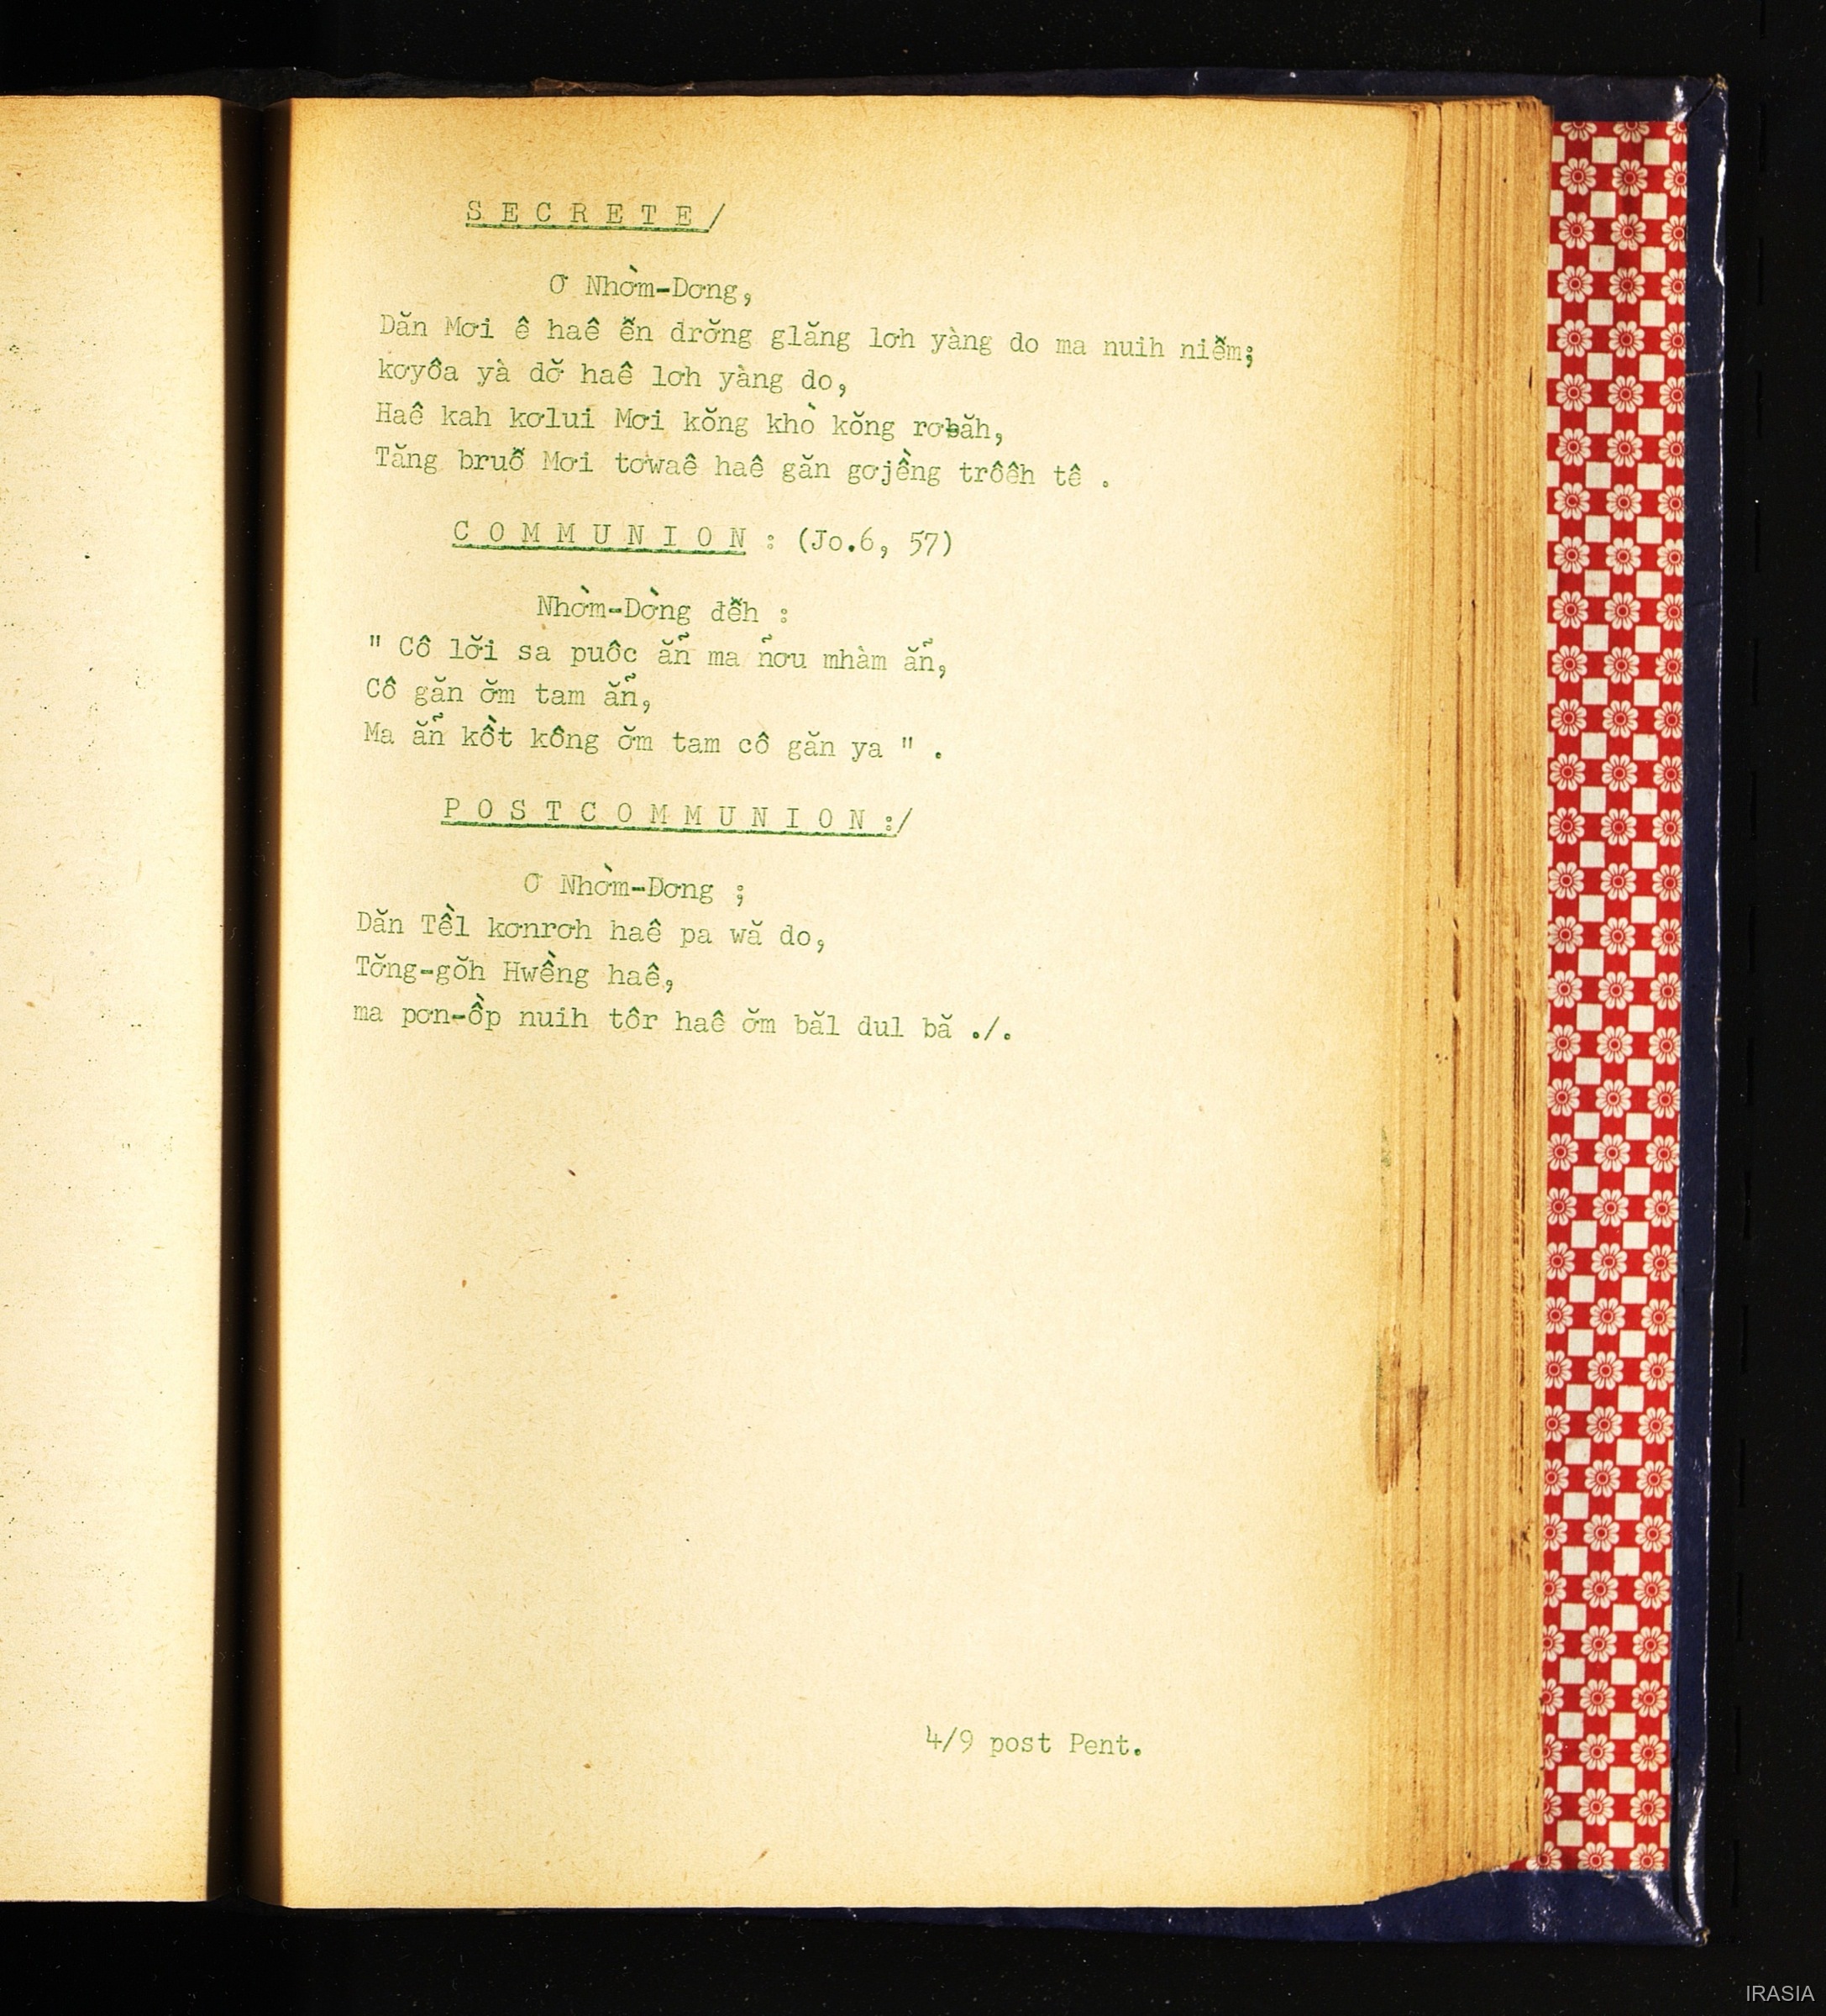 S E C R E T E /
Ơ Nhờm-Dơng,
Dăn Mơi ê haê ễn drơ̆ng glăng lơh yàng do ma nuih niễm;
kơyôa yà dơ̆ haê lơh yàng do,
Haê kah kơlui Mơi kŏng khò kŏng rơbăh,
Tăng bruỗ Mơi tơwaê haê găn gơjềng trôêh tê .
C O M M U N I O N : (Jo.6, 57)
Nhờm-Dờng đễh :
" Cô lơ̆i sa puôc ăñ ma ñơu mhàm ăñ,
Cô găn ơ̆m tam ăñ,
Ma ăñ kồt kông ơ̆m tam cô găn ya " .
P O S T C O M M U N I O N :/
Ơ Nhờm-Dơng ;
Dăn Tềl kơnrơh haê pa wă do,
Tơ̆ng-gŏh Hwềng haê,
ma pơn-ồp nuih tôr haê ơ̆m băl dul bă ./.
4/9 post Pent.
IRASIA